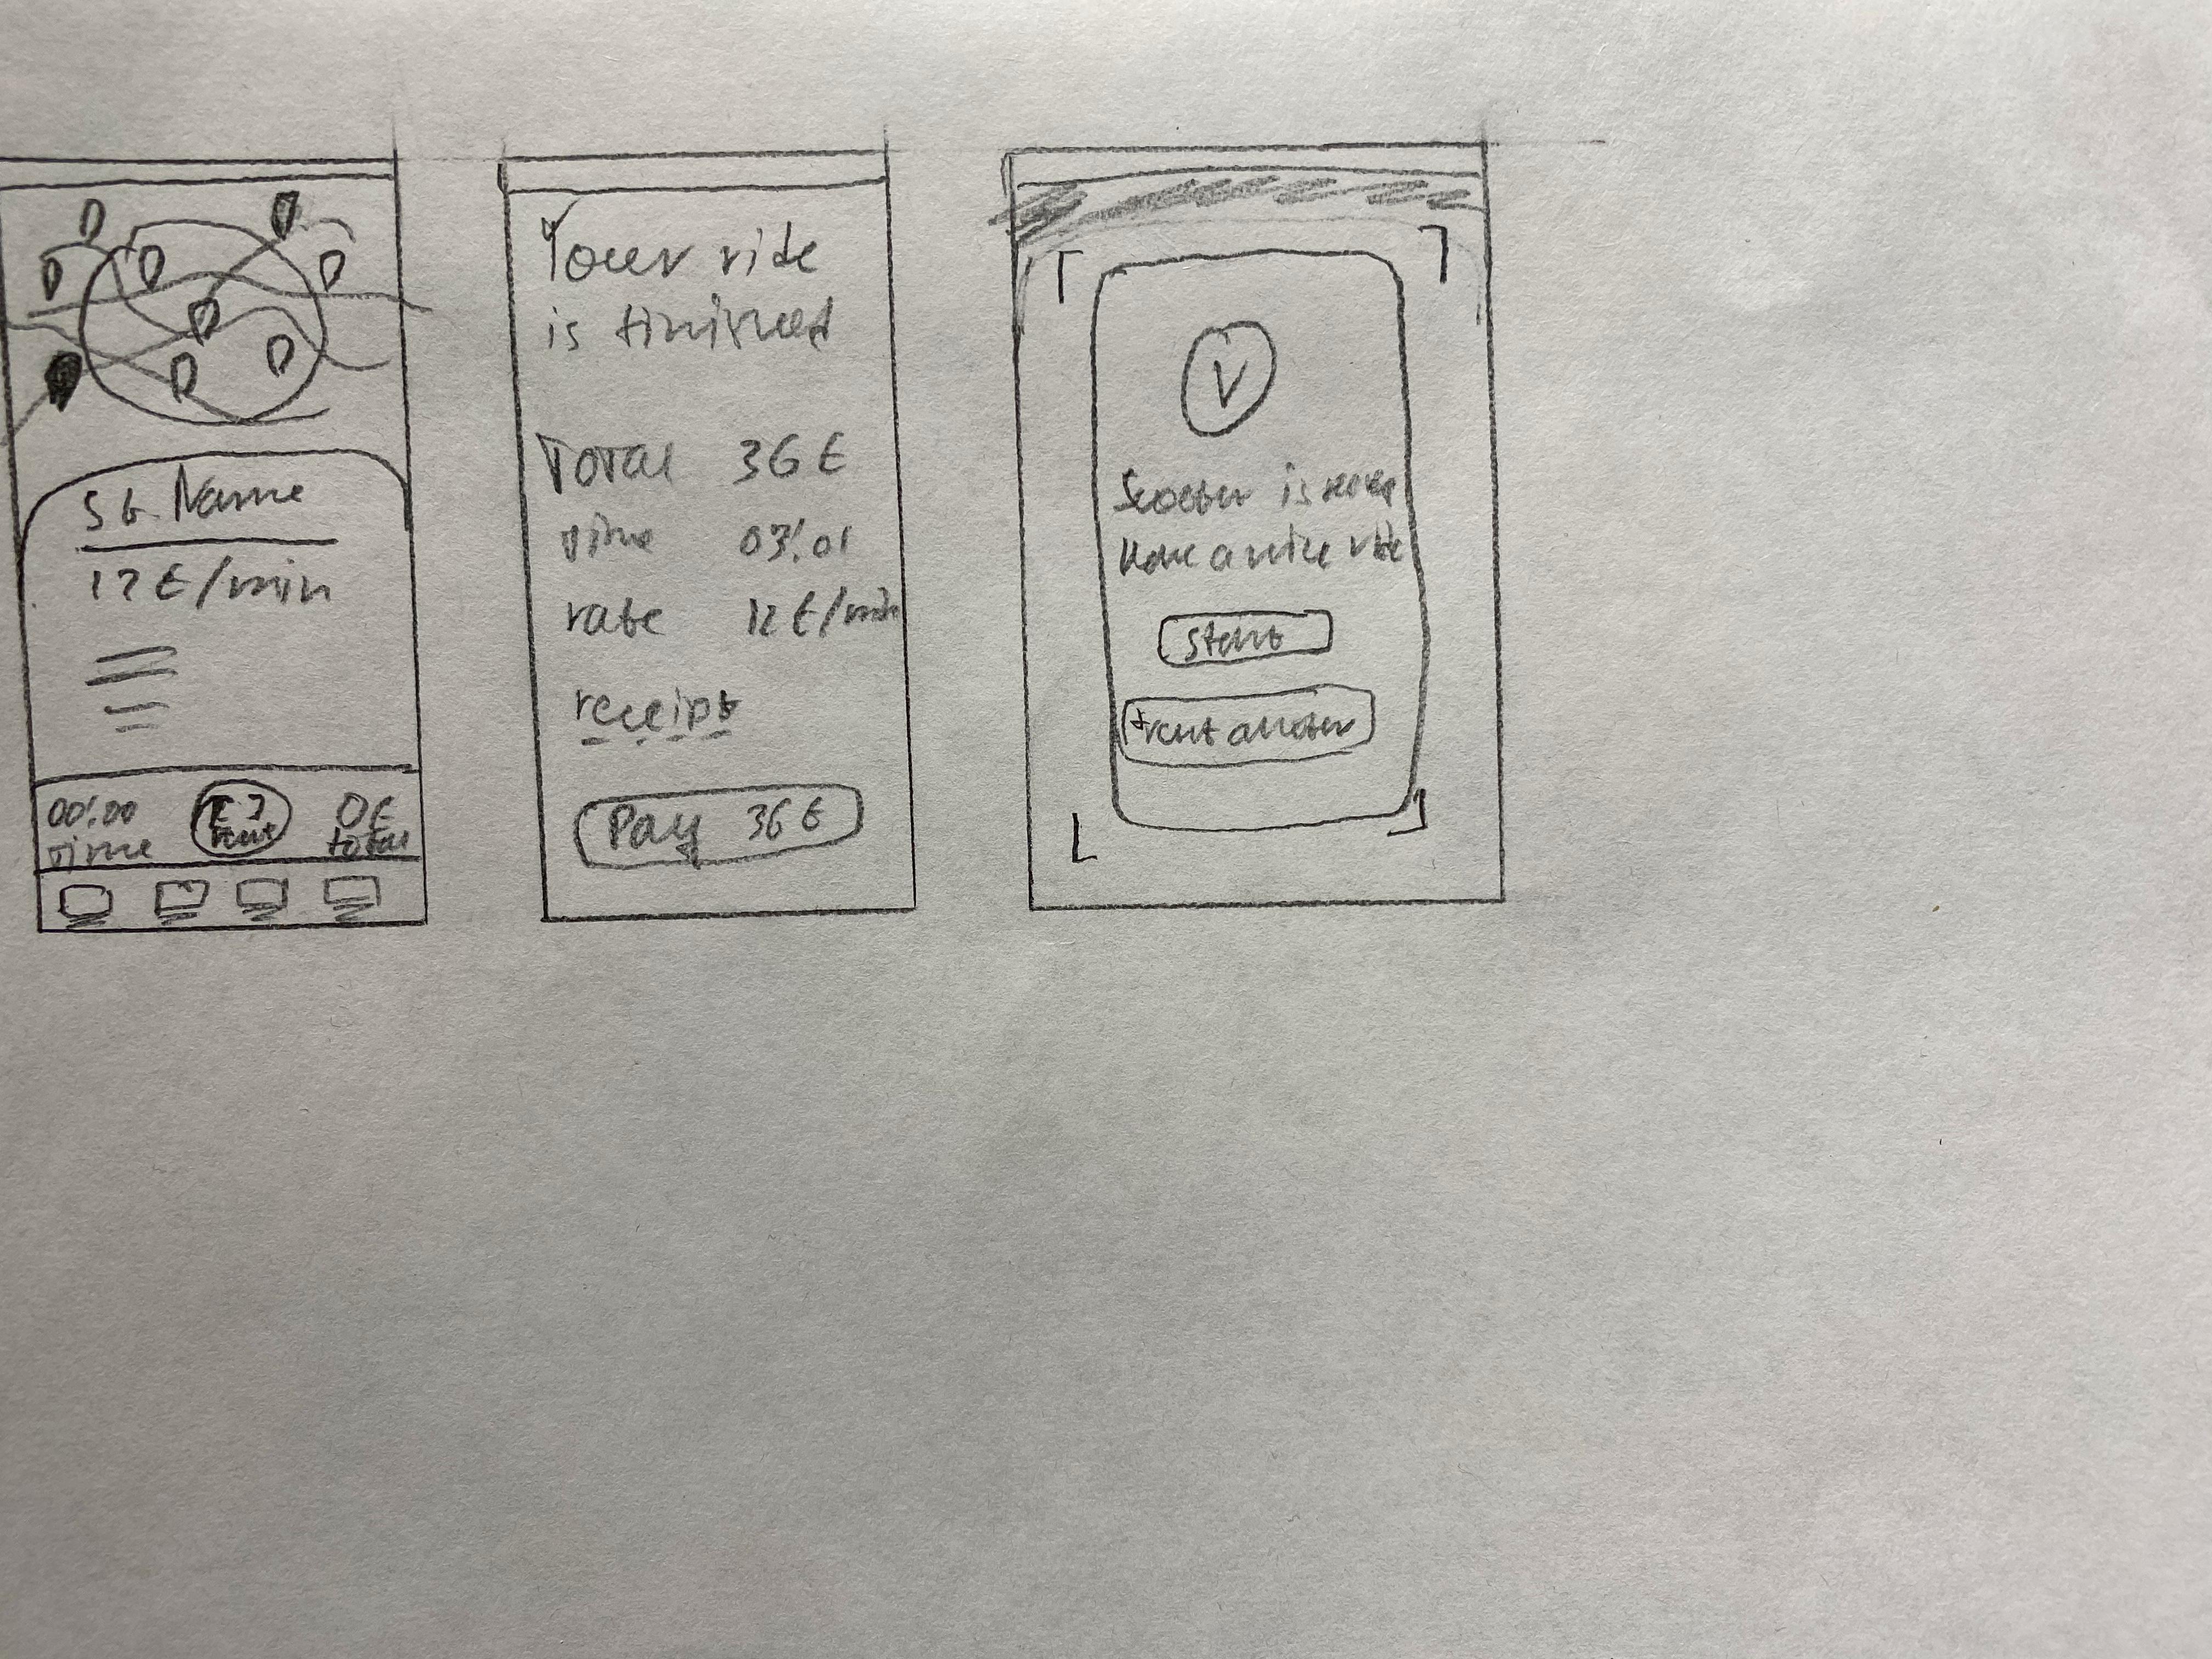 St. Name
12 €/min
00:00
time
rent
0 €
total
Your ride
is finished
Total 36 €
time 03:01
rate 12 €/min
receipt
Pay 36 €
Scooter is
Have a nice ride
Start
+ rent another